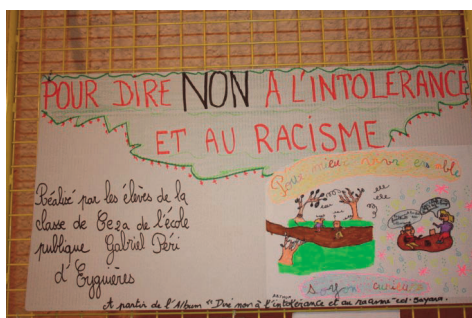 POUR DIRE NON A L'INTOLERANCE
ET AU RACISME
Réalisé par les élèves de la
classe de de l'école
publique Gabriel Péri
d'Eyguières
Pour mieux vivre ensemble
soyons curieux
A partir de l'Album "Dire non à l'intolérance et au racisme"